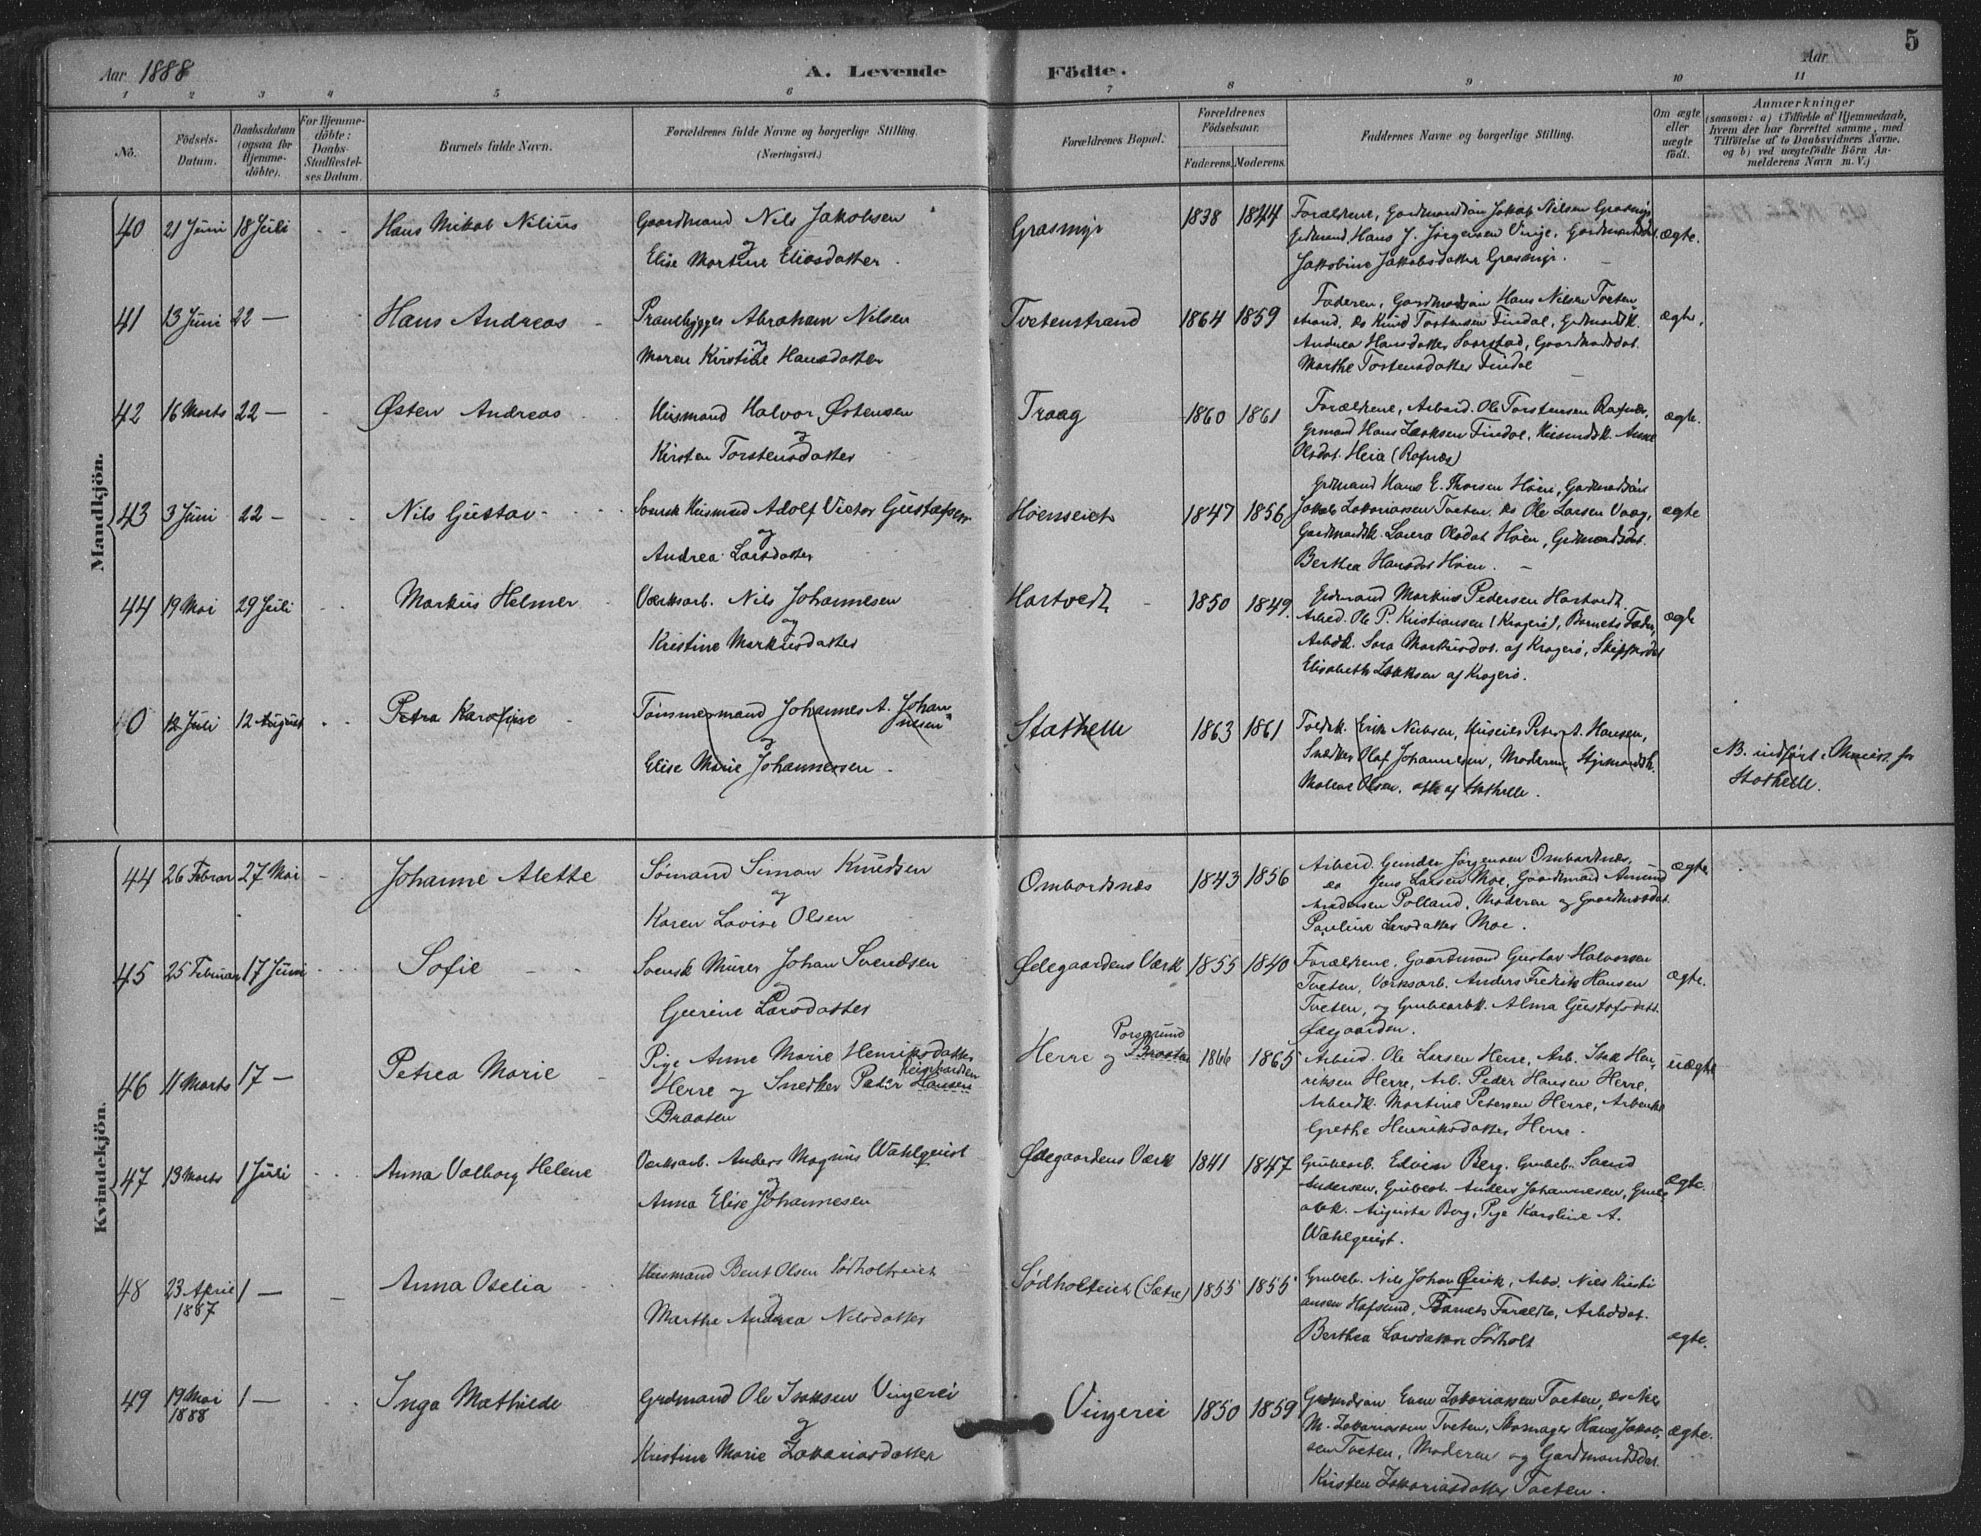 5
Aar 1888
A. Levende Födte.
Aar
1 2 3 4 5 6 7 8 9 10 11
Nö.
Födsels-Datum.
Daabsdatum (ogsaa for Hjemme-döbte).
For Hjemme-döbte: Daabs-Stadfæstel-ses Datum.
Barnets fulde Navn.
Forældrenes fulde Navne og borgerlige Stilling. (Næringsvei.)
Forældrenes Bopæl.
Forældrenes Födselsaar.
Faderens. Moderens.
Faddernes Navne og borgerlige Stilling.
Om ægte eller uægte födt.
Anmærkninger
(saasom: a) i Tilfælde af Hjemmedaab, hvem der har forrettet samme, med Tilföielse af to Daabsvidners Navne, og b) ved uægtefödte Börn An-melderens Navn m. V.)
Mandkjön.
40 21 Juni 18 Juli Hans Mikal Nilius Gaardmand Nils Jakobsen og Elise Martine Eliasdatter Grasmyr 1838 1844
Forældrene, Gardmandsøn Jakob Nilsen Grasmyr
Grdmand Hans J. Jørgensen Vinje, ægte.
Jakobine Jakobsdatter Grasmyr.
41 13 Juni 22 — Hans Andreas Abraham Nilsen og Maren Kirstine Hansdatter Tvetenstrand 1864 1859
Faderen, Gardmandsøn Hans Nilsen Tveten
strand, do Knud Torstensen Findal, Grdmandsk. ægte.
Andrea Hansdatter Saarstad, Gaardmdsdat.
Marthe Torstensdatter Findal
42 16 Marts 22 — Østen Andreas Husmand Halvor Østensen og Kirsten Torstensdatter Traag 1860 1861
Forældrene, Arbeid. Ole Torstensen Rafnæs, ægte.
Grmand Hans Isaksen Findal, Husmdsk. Anne
Olsdat. Heia (Rafnæs)
43 3 Juni 22 — Nils Gustav Svensk Husmand Adolf Victor Gustafsen og Andrea Larsdatter Høenseiet 1847 1856
Grdmand Hans E. Thorsen Høen, Gardmandsøn
Jakob Zakariassen Tveten, do Ole Larsen Vaag, ægte
Gardmandsk. Laura Olsdat Høen, Grdmandsdat.
Berthea Hansdat Høen.
44 19 Mai 29 Juli Markus Helmer Værksarb. Nils Johannesen og Kristine Markusdatter Hartvedt 1850 1849.
Grdmand Markus Pedersen Hartvedt,
Arbeid. Ole P. Kristiansen (Kragerø), Barnets Fader, ægte
Arbdk. Sara Markusdat. af Kragerø,
Elisabeth Isaksen af Kragerø.
0 12 Juli 12 August Petra Karoline Tømmermand Johannes A. Johannesen og Elise Marie Johannesen Stathelle 1863 1861
Toldk. Erik Nielsen, Peter A. Hansen,
Snedker Olaf Johannesen, Moderen, Styrmandsk.
Malene Olsen, alle af Stathelle.
NB. indført i Minist. for
Stathelle.
Kvindekjön.
44 26 Februar 27 Mai Johanne Alette Sømand Simon Knudsen og Karen Lovise Olsen Ombordsnæs 1843 1856
Arbeid. Gunder Jørgensen Ombordsnæs,
do Jens Larsen Moe, Gaardmand Amund ægte
Andersen Polland, Moderen og Gaardmandsdat.
Pauline Larsdatter Moe.
45 25 Februar 17 Juni Sofie Svensk Murer Johan Svendsen og Gurine Larsdatter Ødegaardens Værk 1855 1840
Forældrene, Gaardmand Gustav Halvorsen
Tveten, Værksarb. Anders Fredrik Hansen ægte.
Tveten, og Grubearbk. Alma Gustafsdatt.
Ødegaarden.
46 11 Marts 17 — Petrea Marie Pige Anne Marie Henriksdatter Herre og Snedker Peder Hansen Braaten Herre og Porsgrund Braaten 1866 1865
Arbeid. Ole Larsen Herre, Arb. Isak Hen-
riksen Herre, Arb. Peder Hansen Herre, uægte
Arbeidk. Martine Petersen Herre,
Grethe Henriksdatter Herre.
47 13 Marts 1 Juli Anna Valborg Helene Værksarb. Anders Magnus Wahlquist og Anna Elise Johannesen Ødegaardens Værk 1841 1847
Grubearb. Edvin Berg, Grubeb. Svend
Andersen, Grubeab. Anders Johannesen, Grube ægte.
abk. Augusta Berg, Pige Karoline A.
Wahlquist.
48 23 April 1887 1 — Anna Oselia Husmand Bent Olsen Sørholteiet og Marthe Andrea Nilsdatter Sødholteiet (Sætre) 1855 1855
Grubeb. Nils Johan Qvik, Arbd. Nils Kristi
ansen Hafsund, Barnets Forældre, Arbddat.
Berthea Larsdatter Sørholt ægte.
49 19 Mai 1888 1 — Inga Mathilde Grdmand Ole Isaksen Vingerei og Kristine Marie Zakariasdatter Vingerei 1850 1859
Grdmdsøn Even Zakariassen Tveten, do Nils
M. Zakariassen Tveten, Skomager Hans Jakob- ægte.
sen Tveten, Moderen og Gardmandsdat.
Kirsten Zakariasdatter Tveten.